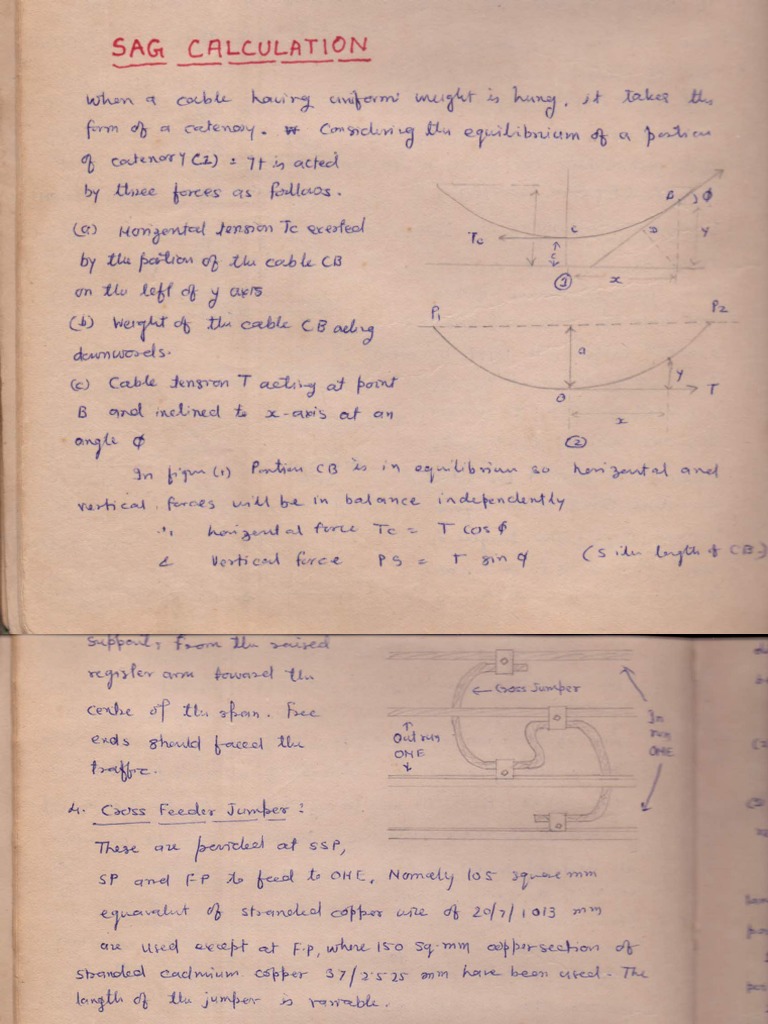 SAG CALCULATION
When a cable having uniform weight is hung, it takes the
form of a catenory. Considering the equilibrium of a portion
of catenory (1) : It is acted
by three forces as follows.
(a) Horizental tension Tc exerted
by the portion of the cable CB
on the left of y axis
(b) Weight of the cable CB acting
downwords.
(c) Cable tension T acting at point
B and inclined to x-axis at an
angle φ
Tc
C
B
φ
D
y
c
x
①
P1
P2
a
y
O
T
x
②
In figure (1) Portion CB is in equilibrium so horizental and
vertical forces will be in balance independently
∴ horizental force Tc = T cos φ
& Vertical force PS = T sin φ (S is the length of CB.)
support, from the raised
register arm toward the
centre of the span. Free
ends should faced the
traffic.
Cross Jumper
Out run
OHE
In
run
OHE
4. Cross Feeder Jumper :
These are provided at SSP,
SP and FP to feed to OHE. Namely 105 square mm
equavalent of stranded copper wire of 20/7/1013 mm
are used except at F.P, where 150 sq. mm copper section of
stranded cadmium copper 37/2.525 mm have been used. The
length of the jumper is variable.